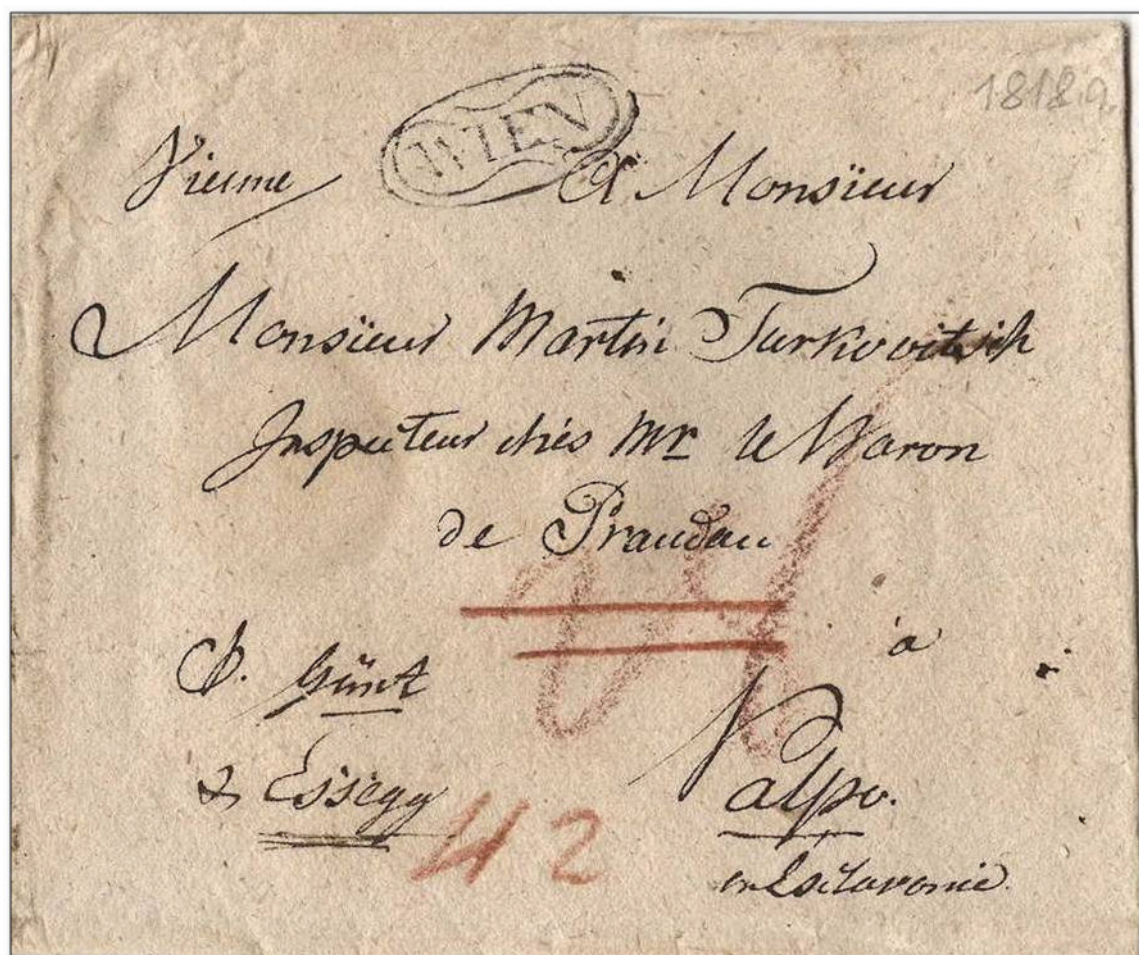 1818.9.
WIEN
Vienne
A Monsïeur
Monsïeur Martin Turkovitsch
Inspecteur chés Mr le Baron
de Prandau
à
P. Günz
& Essegg
Valpo.
en Esclavonie
42